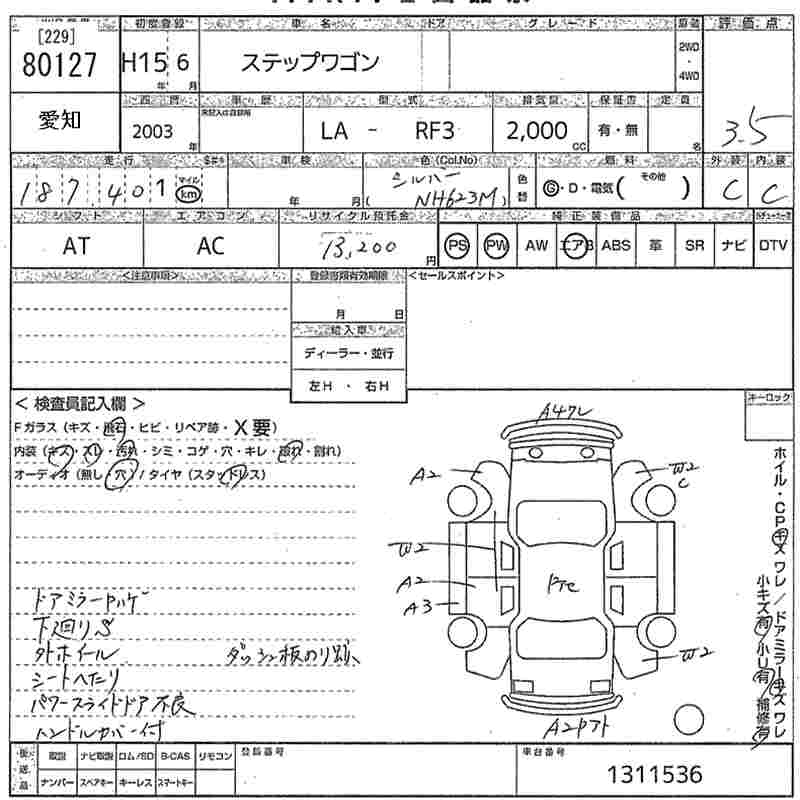 [229]
80127
初度登録 車名 ドア グレード 評価点
H15 6 ステップワゴン
年 月
2WD
・
4WD
愛知
車歴 型式 排気量 保証書 定員
2003 年
LA - RF3 2,000 CC 有・無 名
3.5
走行 車検 色(Col.No) 燃料 外装 内装
187,401 マイル km 年 月 (シルバー NH623M) 色替 G・D・電気( その他 ) C C
シフト エアコン リサイクル預託金 純正装備品
AT AC 13,200 円 PS PW AW エアB ABS 革 SR ナビ DTV
<注意事項> 登録書類有効期限 <セールスポイント>
月 日
輸入車
ディーラー・並行
左H ・ 右H
キーロック
< 検査員記入欄 >
Fガラス (キズ・飛石・ヒビ・リペア跡・X要)
内装 (キズ・スレ・汚れ・シミ・コゲ・穴・キレ・破れ・割れ)
オーディオ (無し・穴) / タイヤ (スタッドレス)
A4ワレ
A2
W2
C
W2
A2
A3
W2
A2
ホイル・CPキズ ワレ / ドアミラーキズ ワレ
小キズ有 / 小U有 / 補修有
ドアミラーヤケ
下廻りS
外ホイール
ダッシュ板のり跡
シートへたり
パワースライドドア不良
ハンドルカバー付
後送品
取説 ナビ取説 ロム/SD B-CAS リモコン 登録番号 車台番号
ナンバー スペアキー キーレス スマートキー
1311536